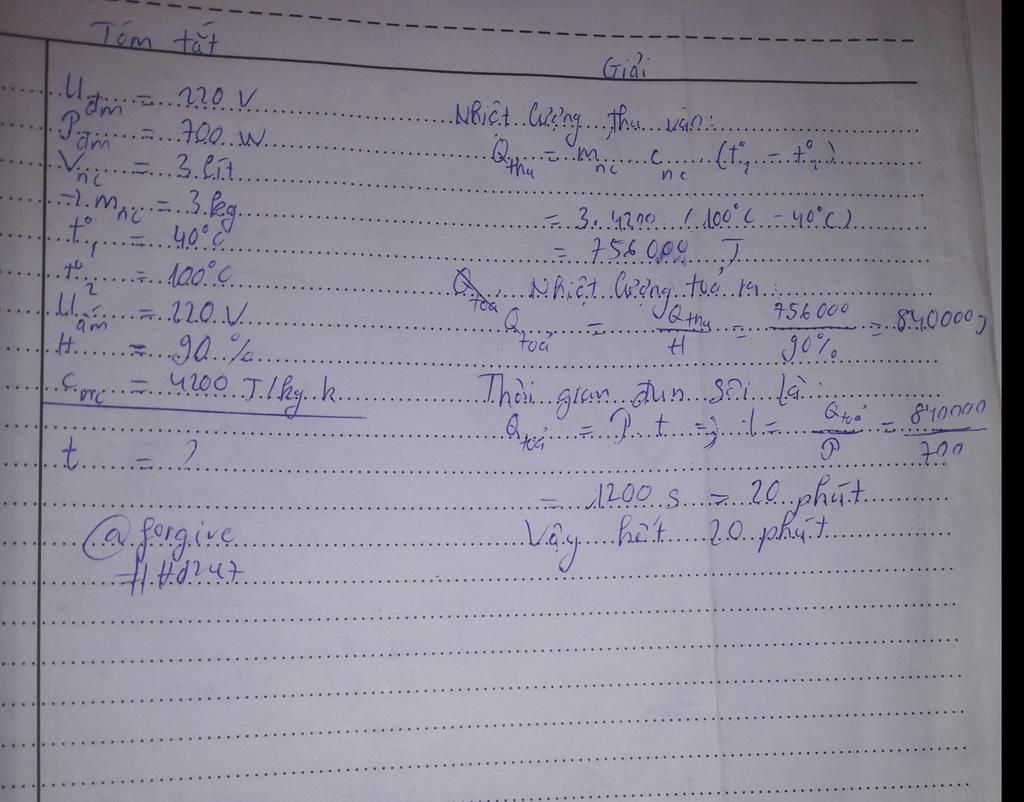 Tóm tắt
Giải
U đm = 220 V
P đm = 700 W
V nc = 3 lít
=> m nc = 3 kg
t°1 = 40°C
t°2 = 100°C
U ấm = 220 V
H = 90 %
c nc = 4200 J/kg.k
t = ?
@forgive
#Hd247
Nhiệt lượng thu vào:
Q thu = m nc c nc (t°2 - t°1)
= 3. 4200 (100°C - 40°C)
= 756000 J
Nhiệt lượng toả ra:
Q toả = Q thu / H = 756000 / 90% = 840000 J
Thời gian đun sôi là:
Q toả = P. t => t = Q toả / P = 840000 / 700
= 1200 s = 20 phút
Vậy hết 20 phút